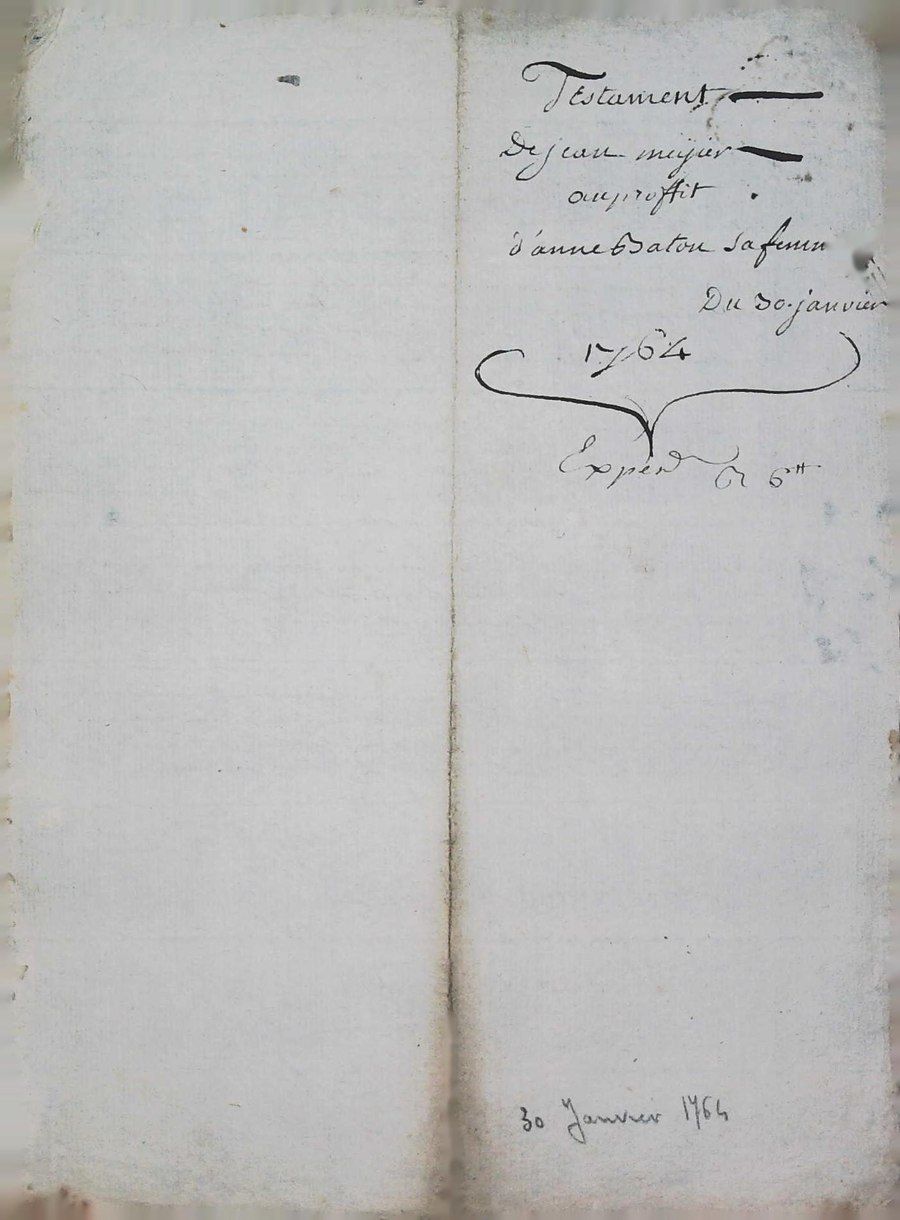 Testament
De jean meyier
au proffit
d'anne Baton sa femm
Du 30 janvier
1764
Expérd 6 tt
30 Janvier 1764